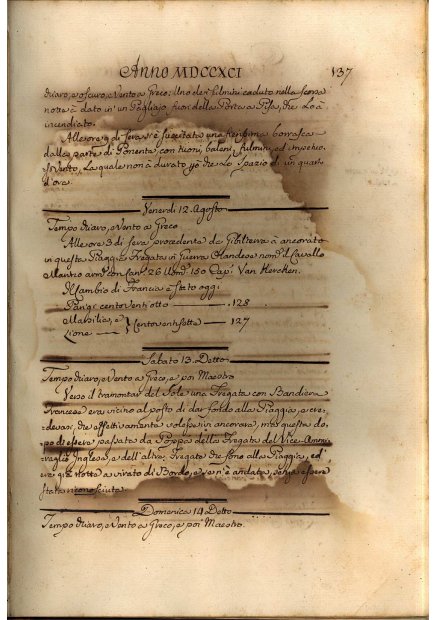 Anno MDCCXCI 137
chiaro, e oscuro, e Vento a Greco; Uno de i fulmini caduto nella scorsa
notte à dato in un Pagliajo fuori della Porta a Pisa, che lo à
incendiato.
Alle ore 9 di sera s'è suscitata una fierissima borrasca
dalla parte di Ponente, con tuoni, baleni, fulmini, ed impetuoso
Vento, la quale non à durato più che lo Spazio di un quarto
d'ora.
Venerdi 12. Agosto
Tempo chiaro, e Vento a Greco
Alle ore 3 di sera procedente da Gibilterra à ancorato
in questa Piaggia Fregata in Guerra Olandese nom. il Cavallo
Marino arm. con Can. 26 Uom. 150 Cap. Van Kerchen.
Il Cambio di Francia è stato oggi
Parigi centoventiotto — 128
Marsilia, e
Lione — } Centoventisette — 127
Sabato 13. Detto
Tempo chiaro, e Vento a Greco, e poi Maestro
Verso il tramontar del Sole una Fregata con Bandiera
Francese era vicino al posto di dar fondo alla Piaggia, e cre-
devasi, che effettivamente volesse ancorarsi, ma questa do-
po di essere passata da Poppa della Fregata del Vice-Ammi-
raglio Inglese, e dell'altre Fregate che sono alla Piaggia, ed
era già notte a virato di Bordo, e se n'è andata, senza essere
stata riconosciuta.
Domenica 14 Detto
Tempo chiaro, e Vento a Greco, e poi Maestro.